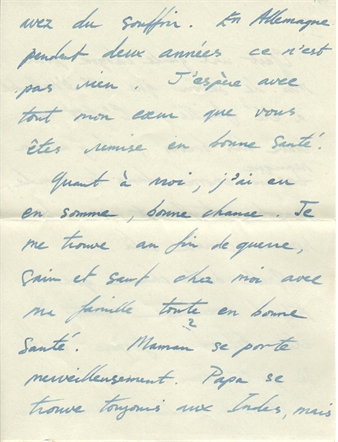 avez du souffrir. En Allemagne
pendent deux années ce n'est
pas rien. J'espère avec
tout mon cœur que vous
êtes remise en bonne santé.
Quant à moi, j'ai eu
en somme, bonne chance. Je
me trouve au fin de guerre,
sain et sauf chez moi avec
ma famille toute en bonne
?
Santé. Maman se porte
merveilleusement. Papa se
trouve toujours aux Indes, mais